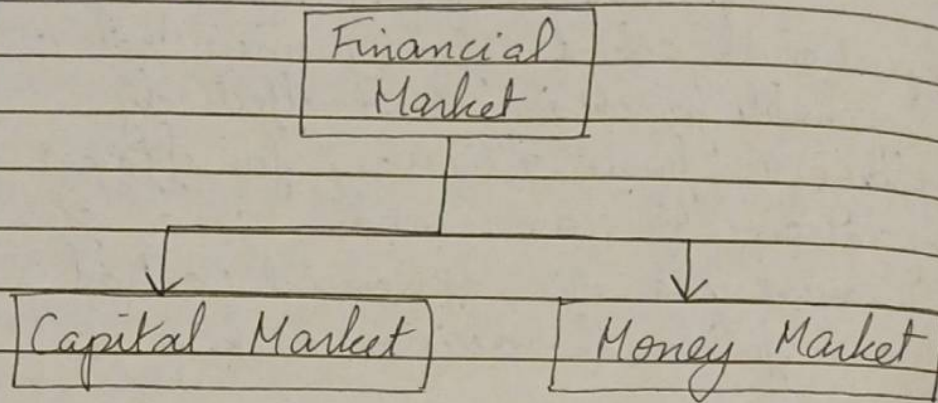 Financial
Market
Capital Market
Money Market